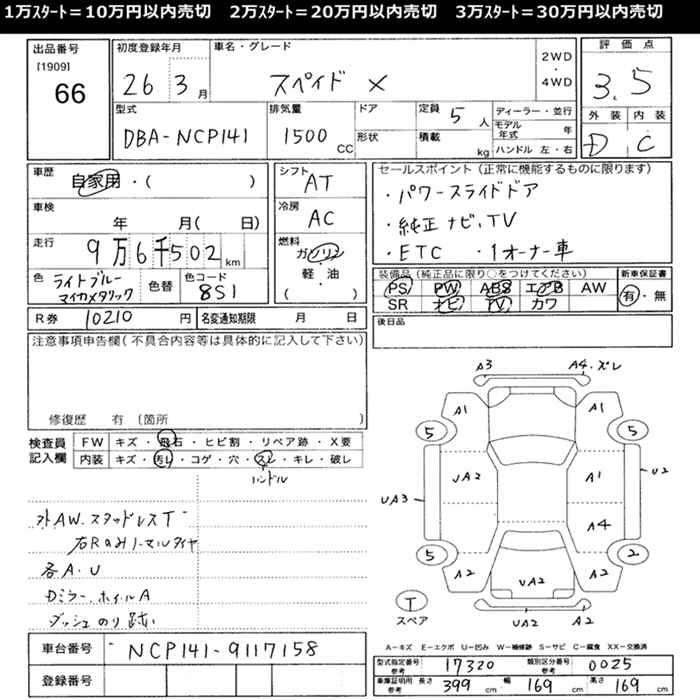 1万ｽﾀｰﾄ＝10万円以内売切　2万ｽﾀｰﾄ＝20万円以内売切　3万ｽﾀｰﾄ＝30万円以内売切
出品番号
[1909]
66
初度登録年月
26 3 月
車名・グレード
スペイド X
2WD
・
4WD
評価点
3.5
外装 内装
D C
型式
DBA-NCP141
排気量
1500 CC
ドア
形状
定員 5 人
積載 kg
ディーラー・並行
モデル年式 年
ハンドル 左・右
車歴
自家用・( )
車検
年 月( 日)
走行
9万6千502 km
色
ライトブルー
マイカメタリック
色替
色コード
8S1
シフト
AT
冷房
AC
燃料
ガソリン
・
軽・油
( )
セールスポイント (正常に機能するものに限ります)
・パワースライドドア
・純正ナビ、TV
・ETC ・1オーナー車
装備品(純正品に限り○をつけてください)
PS PW ABS エアB AW
SR ナビ TV カワ
新車保証書
有・無
後日品
R券 10210 円
名変通知期限 月 日
注意事項申告欄(不具合内容等は具体的に記入して下さい)
修復歴 有 (箇所 )
検査員
記入欄
FW キズ・飛石・ヒビ割・リペア跡・X要
内装 キズ・汚レ・コゲ・穴・スレ・キレ・破レ
ハンドル
外AW.スタッドレスT
右Rのみノーマルタイヤ
各A.U
Dミラー.ホイルA
ダッシュのり跡
A3 A4.ズレ
A1 A1
5 5
UA2 A1 U2
UA3
A4
5 2
A2 UA2 A2
T
スペア
UA2 A2
A−キズ E−エクボ U−凹み W−補修跡 S−サビ C−腐食 XX−交換済
車台番号 NCP141-9117158
登録番号
型式指定番号
参考
17320
類別区分番号
参考
0025
車庫証明用
参考
長さ 399 cm 幅 169 cm 高さ 169 cm